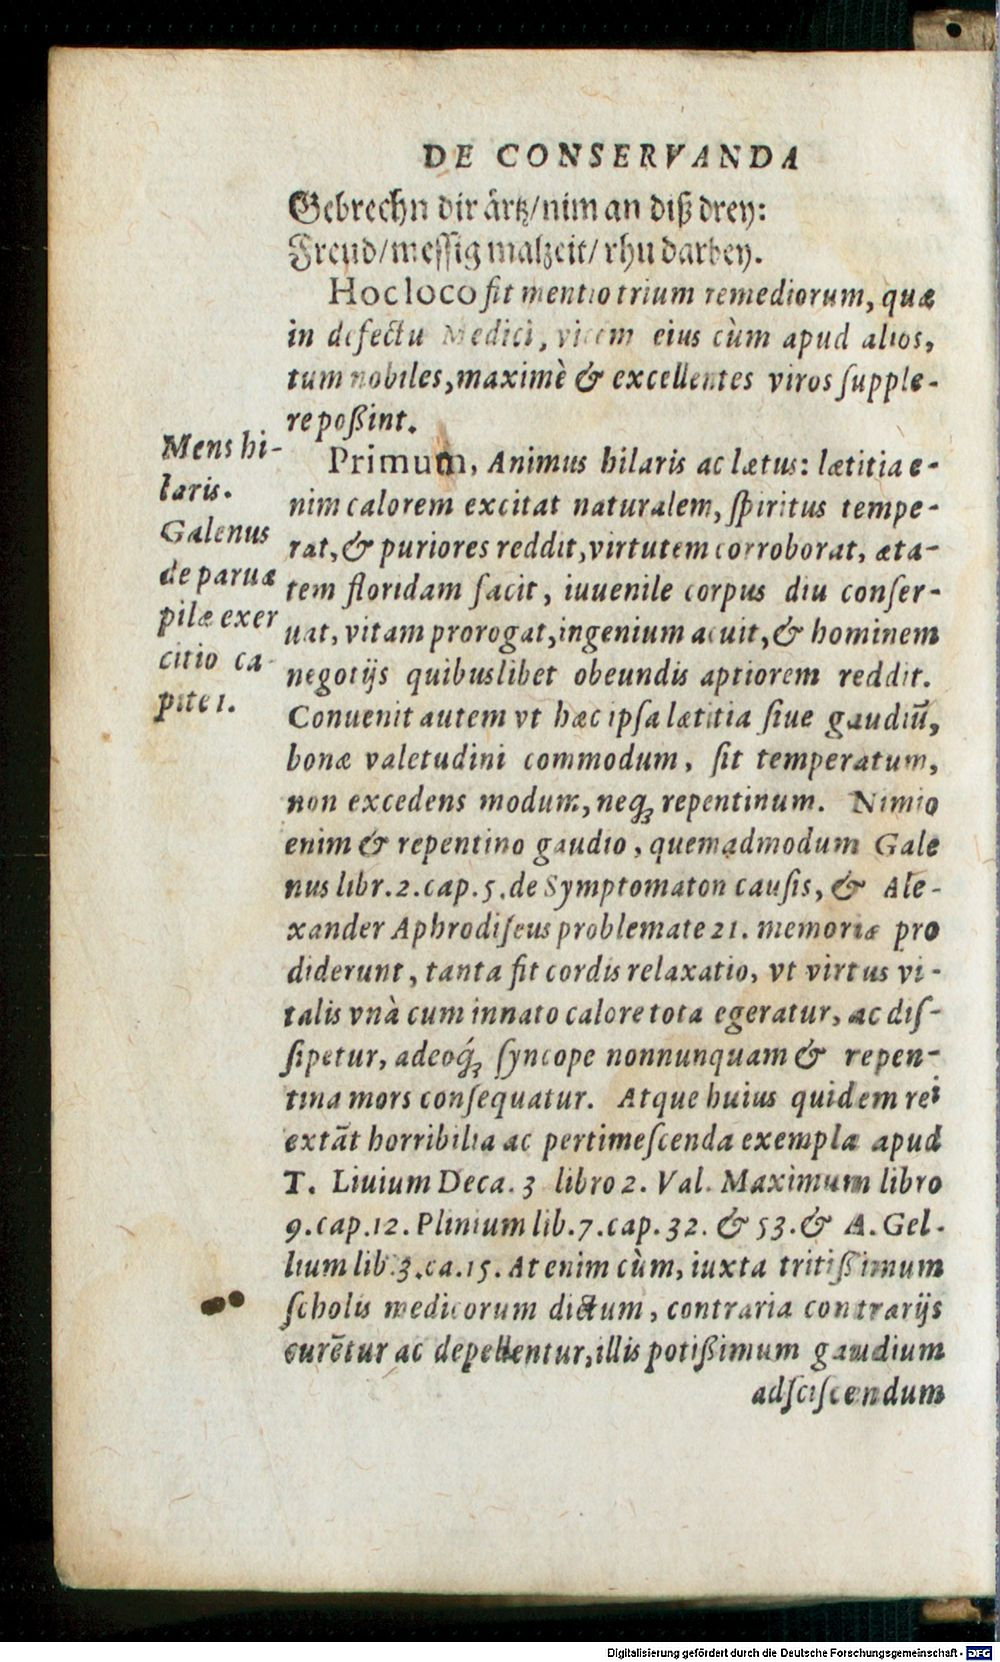 DE CONSERVANDA
Gebrechn dir årtz/nim an diß drey:
Freud/messig malzeit/rhu darbey.
Hoc loco fit mentio trium remediorum, quæ
in defectu Medici, vicem eius cùm apud alios,
tum nobiles, maximè & excellentes viros ſupple-
re poßint.
Mens hi-
laris.
Galenus
de paruæ
pilæ exer
citio ca-
pite 1.
Primum, Animus hilaris ac lætus: lætitia e-
nim calorem excitat naturalem, ſpiritus tempe-
rat, & puriores reddit, virtutem corroborat, æta-
tem floridam facit, iuuenile corpus diu conſer-
uat, vitam prorogat, ingenium acuit, & hominem
negotijs quibuslibet obeundis aptiorem reddit.
Conuenit autem vt hæc ipſa lætitia ſiue gaudiũ,
bonæ valetudini commodum, ſit temperatum,
non excedens modum, neq; repentinum. Nimio
enim & repentino gaudio, quemadmodum Gale
nus libr. 2. cap. 5. de Symptomaton cauſis, & Ale-
xander Aphrodiſeus problemate 21. memoriæ pro
diderunt, tanta fit cordis relaxatio, vt virtus vi-
talis vnà cum innato calore tota egeratur, ac diſ-
ſipetur, adeoq́; ſyncope nonnunquam & repen-
tina mors conſequatur. Atque huius quidem rei
extãt horribilia ac pertimeſcenda exempla apud
T. Liuium Deca. 3 libro 2. Val. Maximum libro
9. cap. 12. Plinium lib. 7. cap. 32. & 53. & A. Gel-
lium lib. 3. ca. 15. At enim cùm, iuxta tritißimum
ſcholis medicorum dictum, contraria contrarijs
curẽtur ac depellentur, illis potißimum gaudium
adſciſcendum
Digitalisierung gefördert durch die Deutsche Forschungsgemeinschaft - DFG